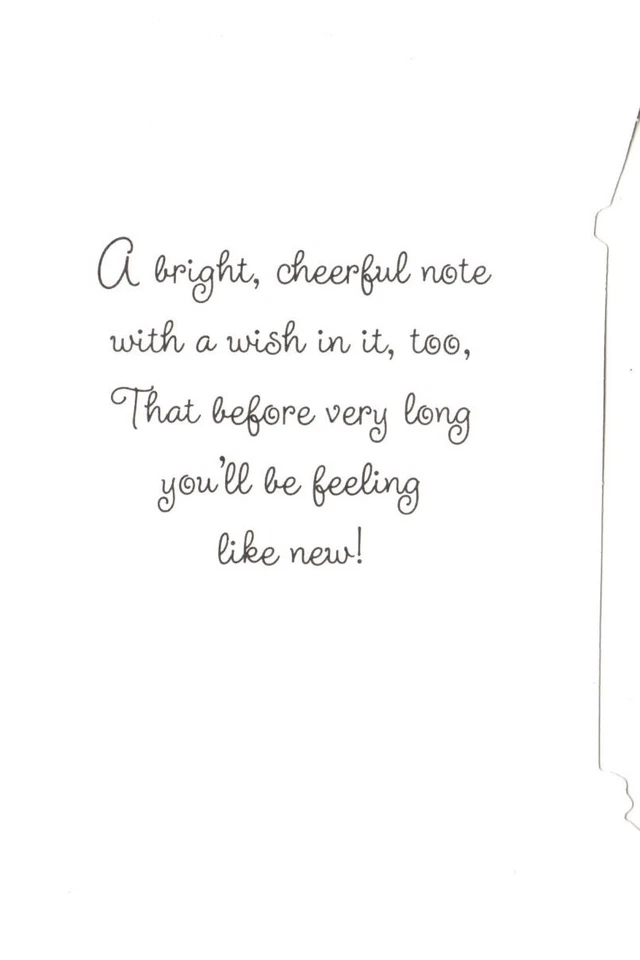 A bright, cheerful note
with a wish in it, too,
That before very long
you'll be feeling
like new!